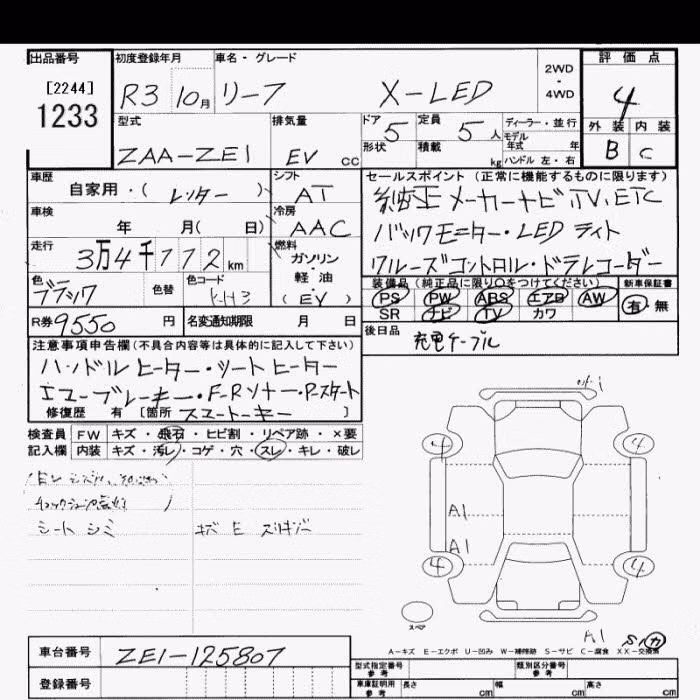 出品番号 初度登録年月 車名・グレード 2WD・4WD 評価点
[2244]
1233 R3 10月 リーフ X-LED 4
型式 排気量 ドア 5 定員 5人 ディーラー・並行 外装 内装
ZAA-ZE1 EV cc 形状 積載 kg モデル年式 年 ハンドル 左・右 B C
車歴 自家用・( レンター ) シフト AT セールスポイント (正常に機能するものに限ります)
純正メーカーナビ,TV,ETC
車検 年 月(日) 冷房 AAC バックモニター・LEDライト
走行 3万4千772km 燃料 ガソリン・軽油 (EV) クルーズコントロール・ドラレコーダー
色 ブラック 色替 色コード KH3 装備品 (純正品に限り○をつけてください) 新車保証書
PS PW ABS エアB AW 有・無
SR ナビ TV カワ
R券 9550円 名変通知期限 月 日 後日品 充電ケーブル
注意事項申告欄(不具合内容等は具体的に記入して下さい)
ハンドルヒーター・シートヒーター
エマーブレーキ・F-Rソナー・Pスタート
修復歴 有 [箇所 スマートキー ]
検査員 FW キズ・飛石・ヒビ割・リペア跡・×要
記入欄 内装 キズ・汚レ・コゲ・穴・スレ・キレ・破レ
シート シミ キズ E スリキズ
4 4
A1
A1
4 4
スペア
A1 S1 カ
A-キズ E-エクボ U-凹み W-補修跡 S-サビ C-腐食 XX-交換済
車台番号 ZE1-125807 型式指定番号 参考 類別区分番号 参考
登録番号 車庫証明用 参考 長さ cm 幅 cm 高さ cm